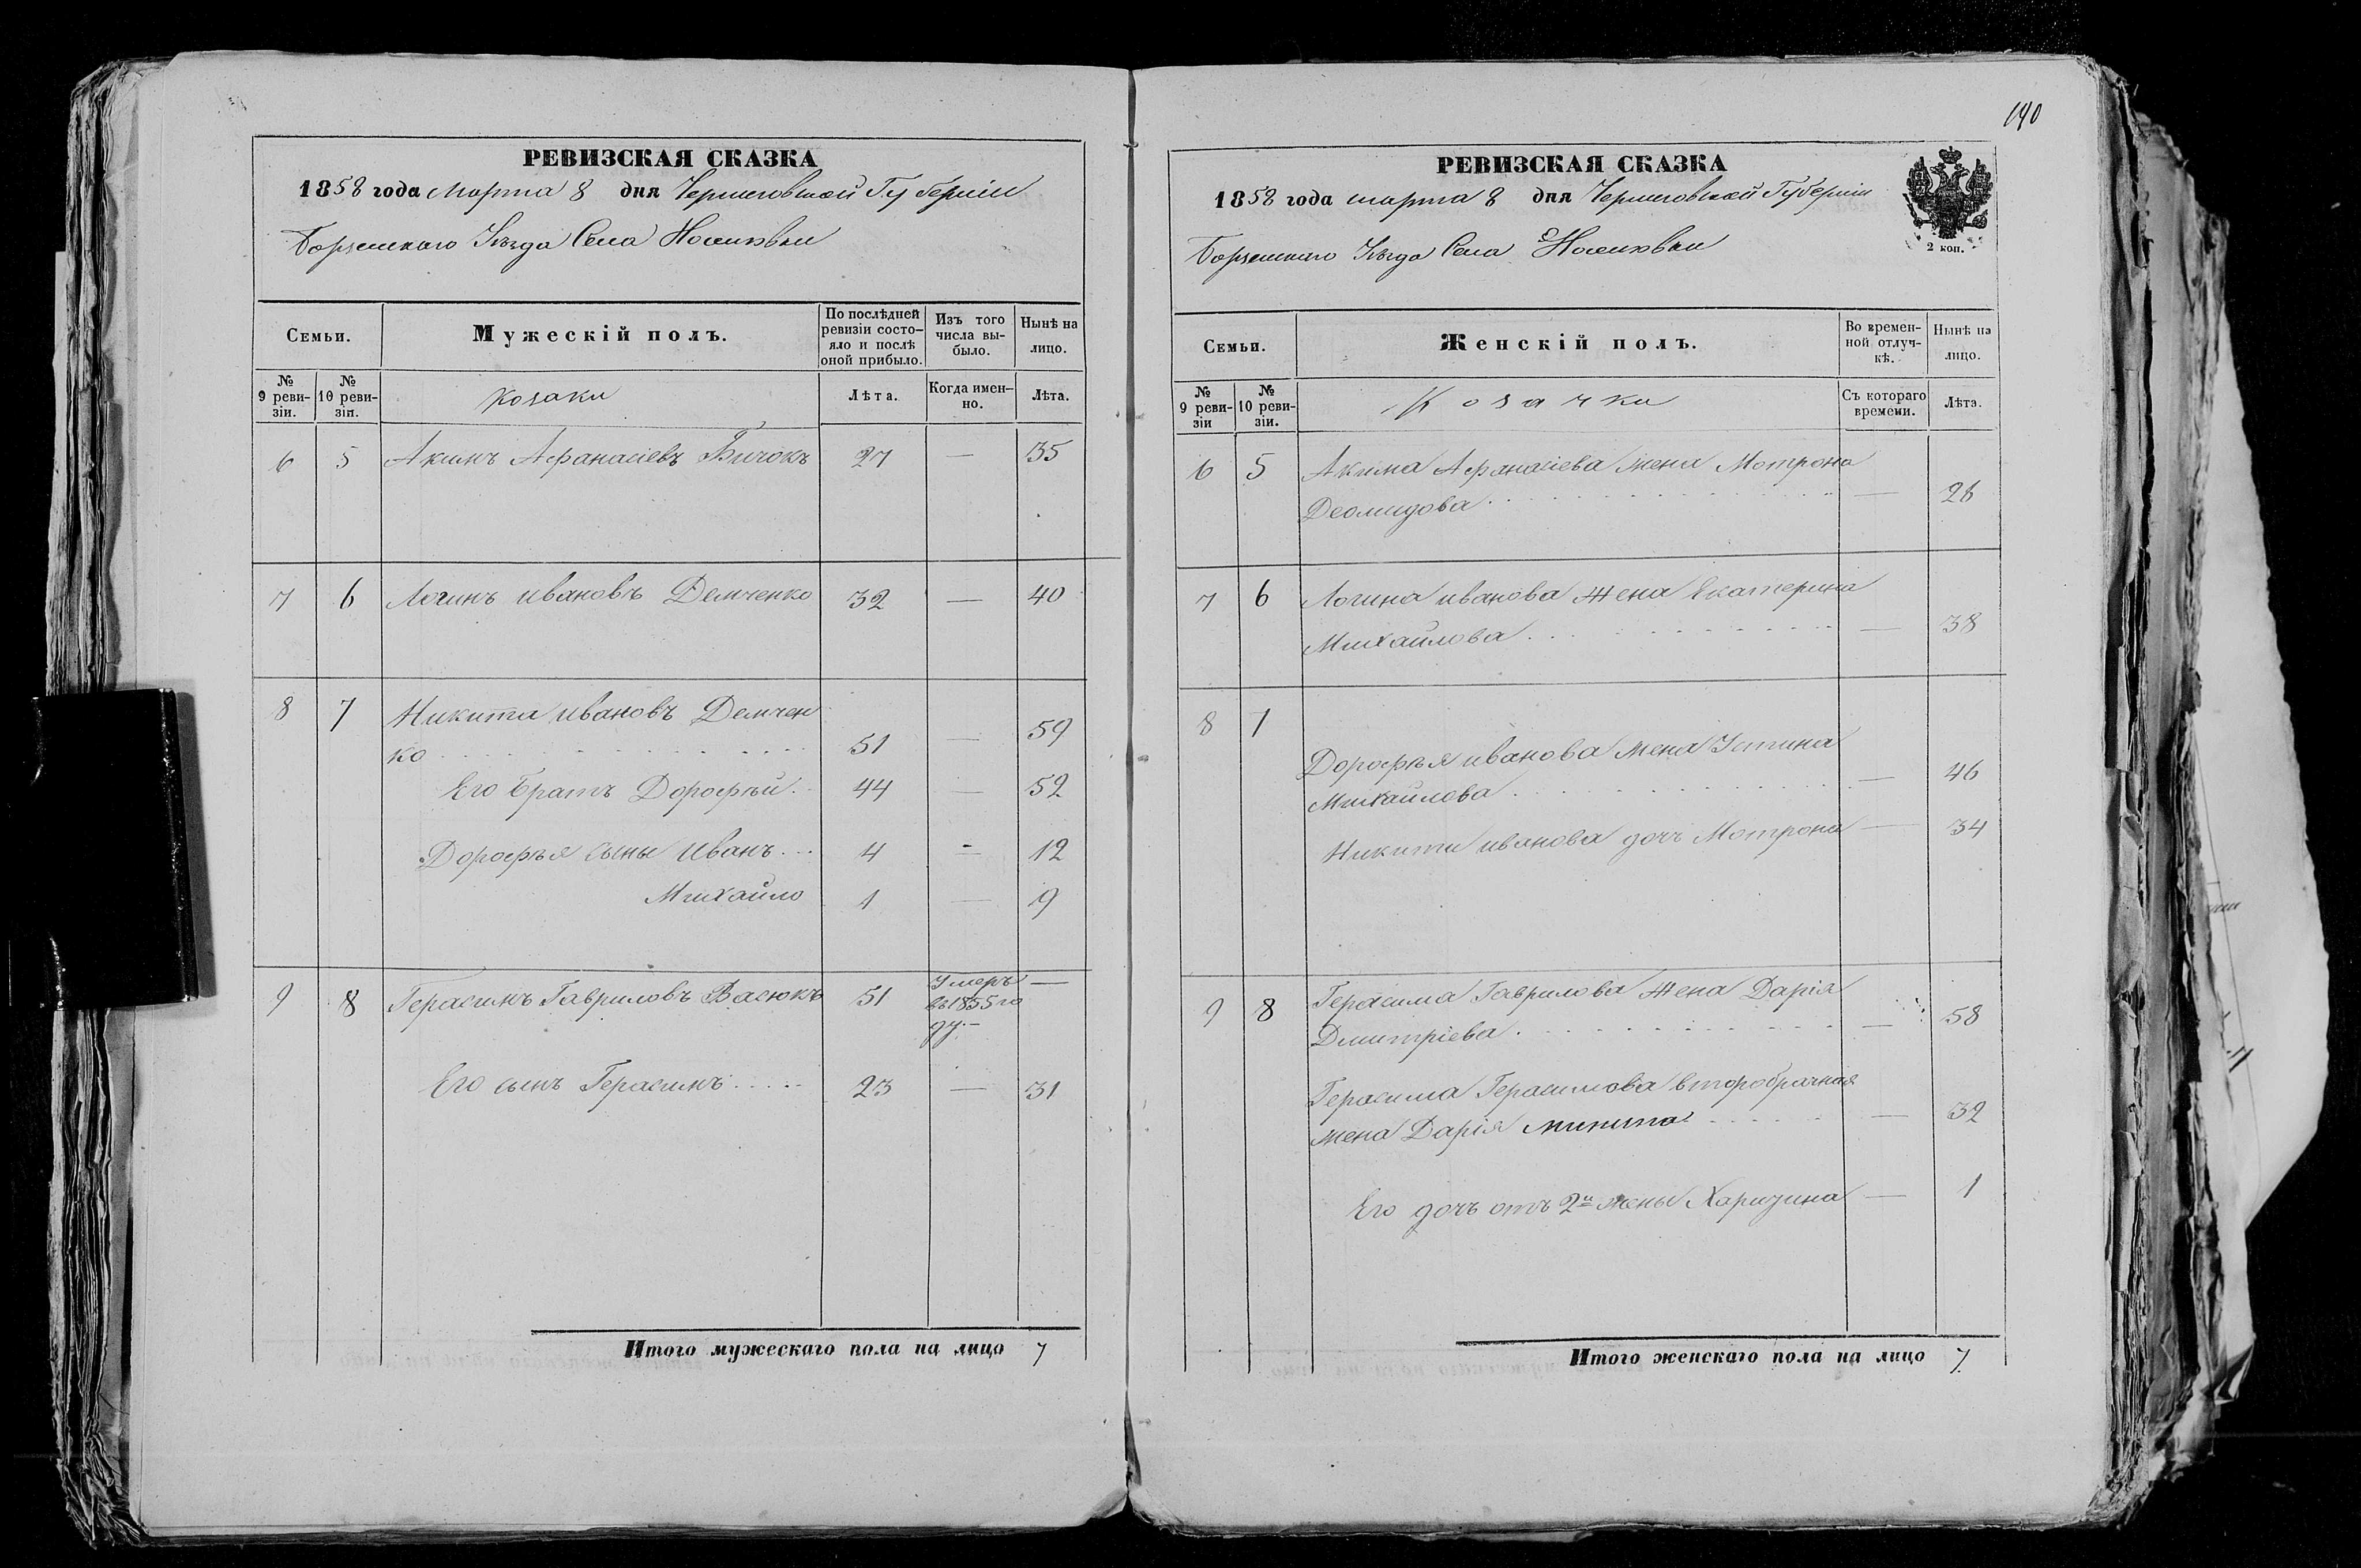 190
РЕВИЗСКАЯ СКАЗКА
1858 года Марта 8 дня Черниговской Губерніи
Борзенскаго Уѣзда Села Носиховки
Семьи.
Мужескій полъ.
По послѣдней ревизіи состояло и послѣ оной прибыло.
Изъ того числа выбыло.
Нынѣ на лицо.
№ 9 ревизіи.
№ 10 ревизіи.
Козаки
Лѣта.
Когда именно.
Лѣта.
6 5 Акимъ Афанасіевъ Бичокъ 27 — 35
7 6 Логинъ Ивановъ Демченко 32 — 40
8 7 Никита Ивановъ Демчен
ко 51 — 59
Его братъ Дорофѣй 44 — 52
Дорофѣя сыны Иванъ 4 — 12
Михайло 1 — 9
9 8 Герасимъ Гавриловъ Васюкъ 51 Умеръ —
въ 1855 го
ду —
Его сынъ Герасимъ 23 — 31
Итого мужескаго пола на лицо 7
РЕВИЗСКАЯ СКАЗКА
1858 года марта 8 дня Черниговской Губерніи
Борзенскаго Уѣзда Села
2 коп.
Семьи.
Женскій полъ.
Во временной отлучкѣ.
Нынѣ на лицо.
№ 9 ревизіи
№ 10 ревизіи.
Козачки
Съ котораго времени.
Лѣта.
6 5 Акима Афанасіева жена Мотрона
Деомидова — 26
7 6 Логина Иванова жена Екатерина
Михайлова — 38
8 7
Дорофѣя Иванова жена Устина
Михайлова — 46
Никити Иванова дочь Мотрона — 34
9 8 Герасима Гаврилова жена Дарія
Дмитріева — 58
Герасима Герасимова второбрачная
жена Дарія — 32
Его дочь отъ 2й жены Харитина — 1
Итого женскаго пола на лицо 7.